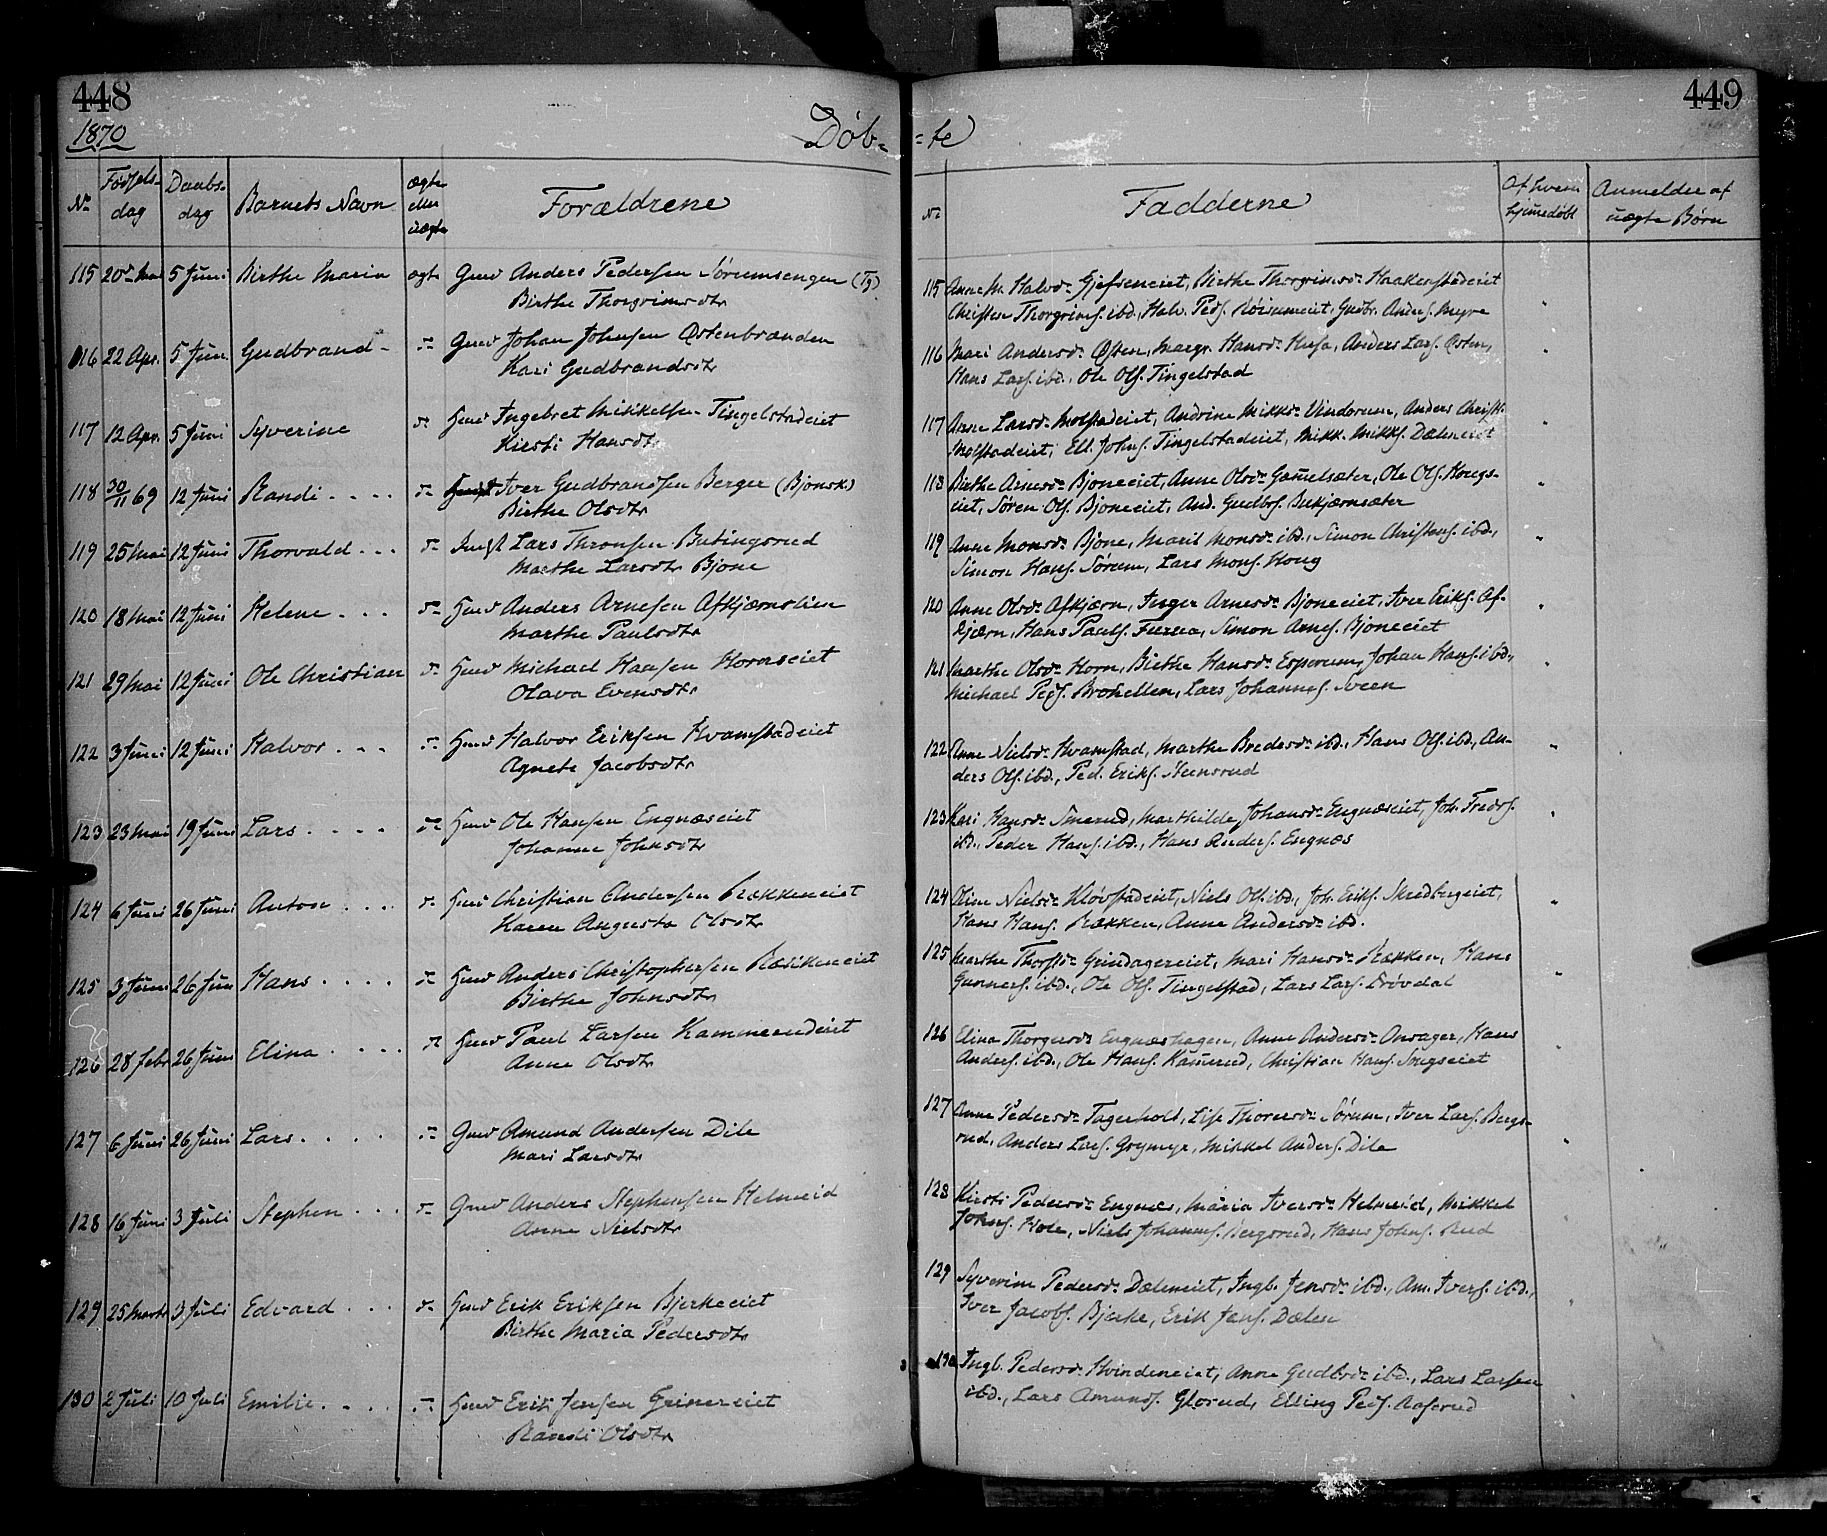 448
1870
Døb-
No
Fødsels-
dag
Daabs-
dag
Barnets Navn
ægte
eller
uægte
Forældrene
115 20de Mai 5 Juni Birthe Maria ægte Gmd Anders Pedersen Sørumsengen (Tg)
Birthe Thorgrimsdtr
116 22 Apr. 5 Jun. Gudbrand - Gmd Johan Johnsen Østenbrænden
Kari Gudbrandsdtr
117 12 Apr. 5 Juni Syverine Hmd Ingebret Mikkelsen Tingelstadeiet
Kirsti Hansdtr
118 30/11 69 12 Juni Randi . . . . Iver Gudbrandsen Berger (Bjonsk.)
Birthe Olsdtr
119 25 Mai 12 Juni Thorvald . . . Inds Lars Thronsen Butingsrud
Marthe Larsdtr Bjone
120 18 Mai 12 Juni Helene . . . Hmd Anders Arnesen Afkjærnslien
Marthe Paulsdtr
121 29 Mai 12 Juni Ole Christian Hmd Michael Hansen Hornseiet
Olava Evensdtr
122 3 Juni 12 Juni Halvor . . . Hmd Halvor Eriksen Hvamstadeiet
Agnete Jacobsdtr
123 23 Mai 19 Juni Lars . . . . Hmd Ole Hansen Engnæseiet
Johanne Johnsdtr
124 6 Juni 26 Juni Anton . . . Hmd Christian Andersen Rækkeneiet
Karen Augusta Olsdtr
125 3 Juni 26 Jun Hans . . . . Hmd Anders Christophersen Rækkeneiet
Birthe Johnsdtr
126 28 Febr 26 Juni Elina . . . . Hmd Paul Larsen Kammerudeiet
Anne Olsdtr
127 6 Juni 26 Juni Lars . . . . Gmd Amund Andersen Dile
Mari Larsdtr
128 16 Juni 3 Juli Stephen . . . Gmd Anders Stephensen Helmeid
Anne Nielsdtr
129 25 Marts 3 Juli Edvard . . . Hmd Erik Eriksen Bjerkeeiet
Birthe Maria Pedersdtr
130 2 Juli 10 Juli Emilie . . . . Hmd Erik Jensen Grinereiet
Randi Olsdtr
449
-te
No
Fadderne
Af hvem
hjemedøbt
Anmelder af
uægte Børn
115 Anne M. Halvdr Gjefseneiet, Birthe Thorgrimsdr Haakenstadeiet
Christen Thorgrims. ibd., Halv. Peds. Røisumeiet, Gudbr. Anders. Myre
116 Mari Andersdr Østen, Margr. Hansdr Husa, Anders Lars. Østen,
Hans Lars. ibd., Ole Ols. Tingelstad
117 Anne Larsdr Molstadeiet, Andrine Mikksdr Vindorum, Anders Christs.
Molstadeiet, Ell. Johns. Tingelstadeiet, Mikk. Mikks. Dæleneiet
118 Birthe Arnesdr Bjoneeiet, Anne Olsdr Gamelsæter, Ole Ols. Hougs-
eiet, Søren Ols. Bjoneeiet, And. Gudbrs.
119 Anne Monsdr Bjone, Marit Monsdr ibd., Simon Christens. ibd.,
Simon Hans. Sørum, Lars Mons. Houg
120 Anne Olsdr Afkjærn, Inger Arnesdr Bjoneeiet, Iver Eriks. Af-
kjærn, Hans Pauls. Simon Arnes. Bjoneeiet
121 Marthe Olsdr Horn, Birthe Hansdr Esperum, Johan Hans. ibd.,
Michael Peds. Brohellen, Lars Johannes. Sveen
122 Anne Nielsdr Hvamstad, Marthe Bredesdr ibd., Hans Ols. ibd., An-
ders Ols. ibd., Ped. Eriks. Steensrud
123 Kari Hansdr Smerud, Marthilde Johansdr Engnæseiet, Joh. Fredrs.
ibd., Peder Hans. ibd., Hans Anders. Engnæs
124 Oline Nielsdr Kløvstadeiet, Niels Ols. ibd., Joh. Eriks. Skredbergeiet,
Hans Hans. Rækken, Anne Andersdr ibd.
125 Marthe Thorstdr Grindagereiet, Mari Hansdr Rækken, Hans
Gunners. ibd., Ole Ols. Tingelstad, Lars Lars. Drøvdal
126 Elina Thorgersdr Engnæshagen, Anne Andersdr Onsager, Hans
Anders. ibd., Ole Hans. Kamerud, Christian Hans. Sougseiet
127 Anne Pedersdr Fagerholt, Lise Thoresdr Sørum, Iver Lars. Bergs-
rud, Anders Lars. Grymyr, Mikkel Anders. Dile
128 Kirsti Pedersdr Engnæs, Maria Iversdr Helmeid, Mikkel
Johns. Hole, Niels Johannes. Bergsrud, Hans Johns. Rud
129 Syverine Pedersdr Dæleneiet, Ingb. Jensdr ibd., Am. Ivers. ibd.,
Iver Jacobs. Bjerke, Erik Jens. Dælen
130 Ingb. Pedersdr Hvindeneiet, Anne Gudbrdr ibd., Lars Larsen
ibd., Lars Amunds. Glorud, Elling Peds. Aaserud